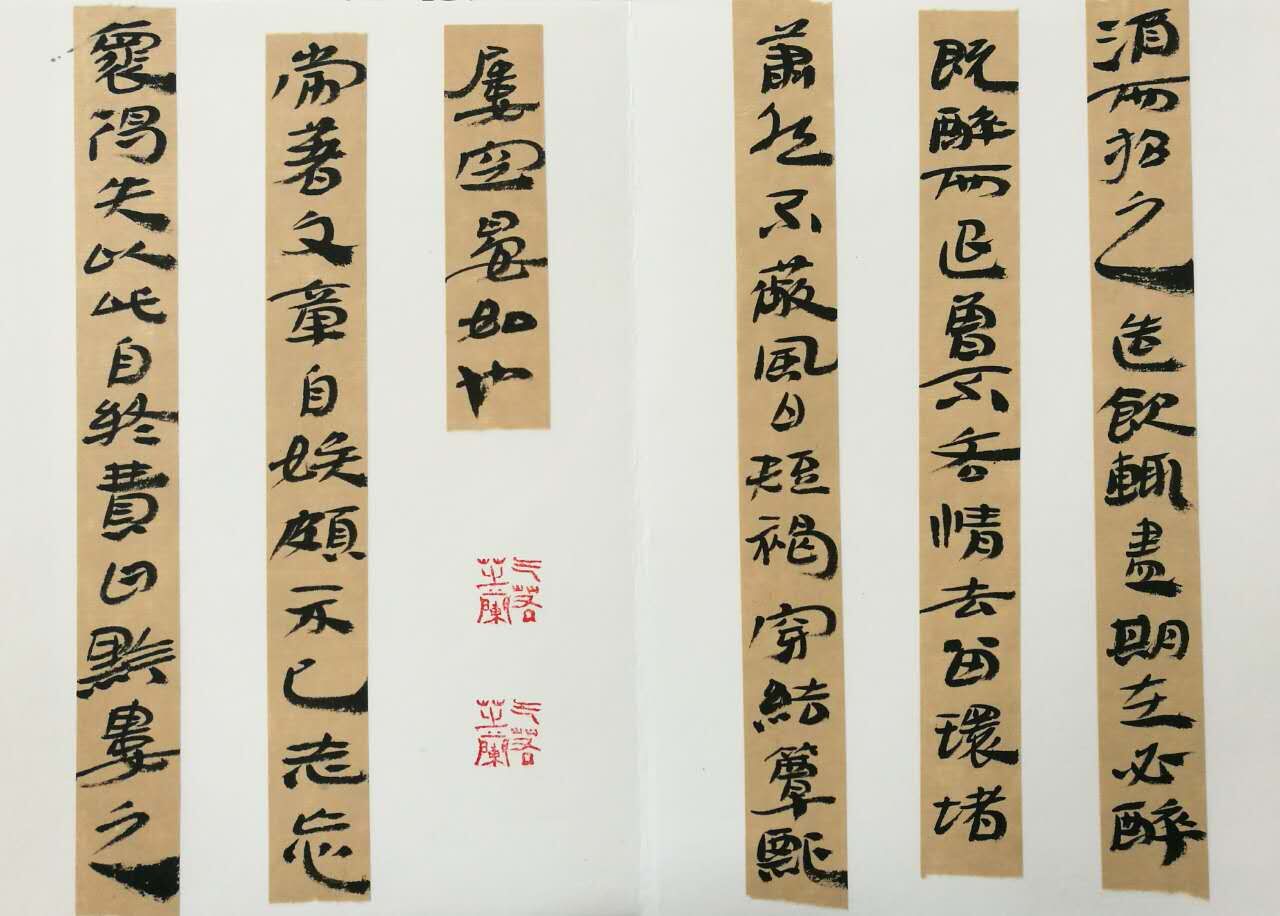 酒而招之造飲輒盡期在必醉
既醉而退曾不吝情去留環堵
蕭然不蔽風日短褐穿結簞瓢
屢空晏如也
常著文章自娛頗示己志忘
懷得失以此自終贊曰黔婁之